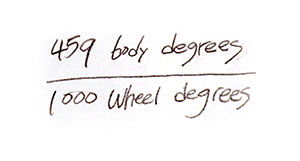 459 body degrees
1000 wheel degrees